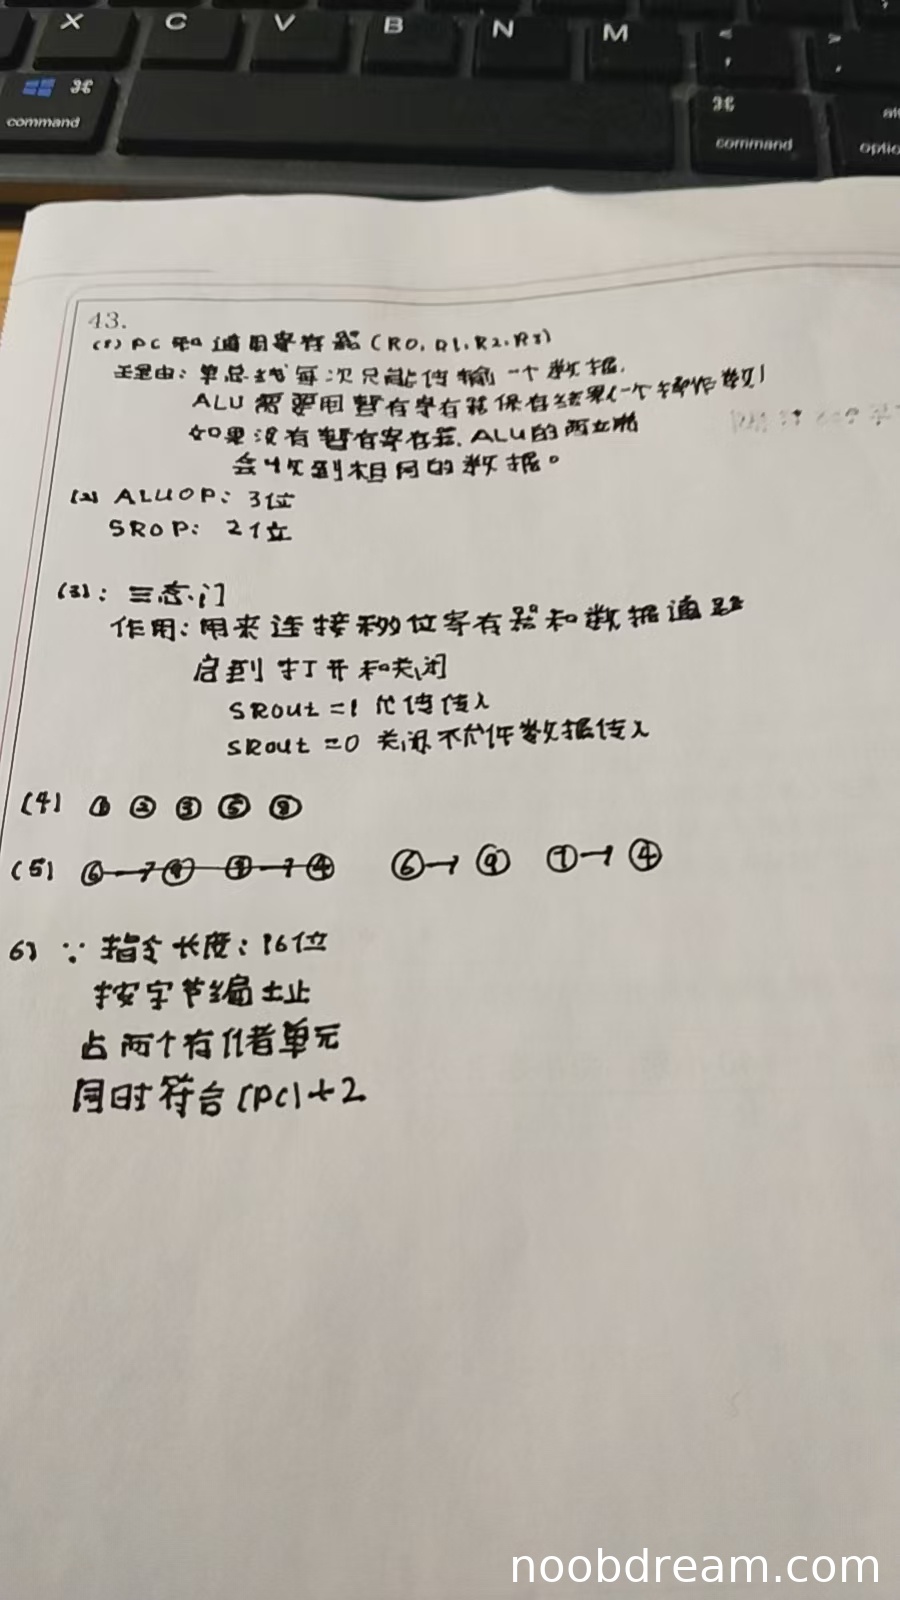 X C V B N M < , > .
⌘ command ⌘ command alt option
43.
(1) PC和通用寄存器(R0,R1,R2,R3)
理由:单总线每次只能传输一个数据,
ALU需要用暂存寄存器保存结果(一个操作数)
如果没有暂存寄存器,ALU的两边端
会收到相同的数据。
(2) ALUOP: 3位
SROP: 2位
(3): 三态门
作用:用来连接移位寄存器和数据通路
启到打开和关闭
SRout =1 允许传入
SRout =0 关闭不允许数据传入
(4) ① ② ③ ⑤ ⑧
(5) ⑥→⑨ ⑦→④ ⑥→⑨ ⑦→④
6) ∵ 指令长度:16位
按字节编址
占两个存储单元
同时符合(PC)+2
noobdream.com